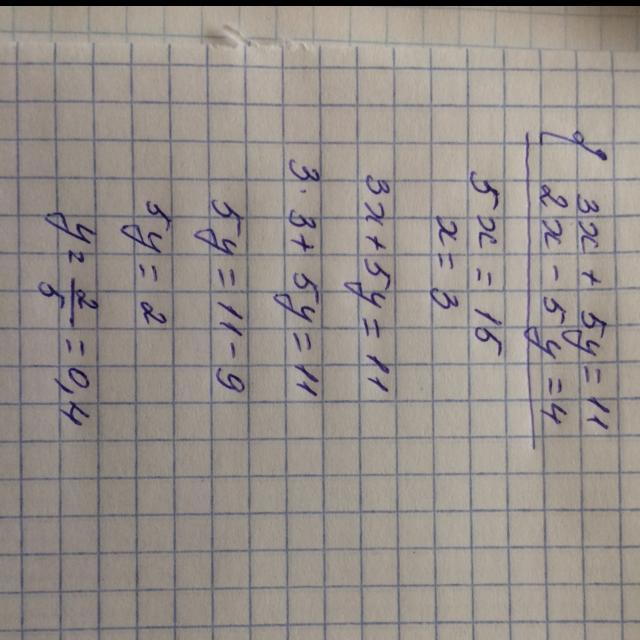 { 3x + 5y = 11
2x - 5y = 4
5x = 15
x = 3
3x + 5y = 11
3 · 3 + 5y = 11
5y = 11 - 9
5y = 2
y = 2/5 = 0,4